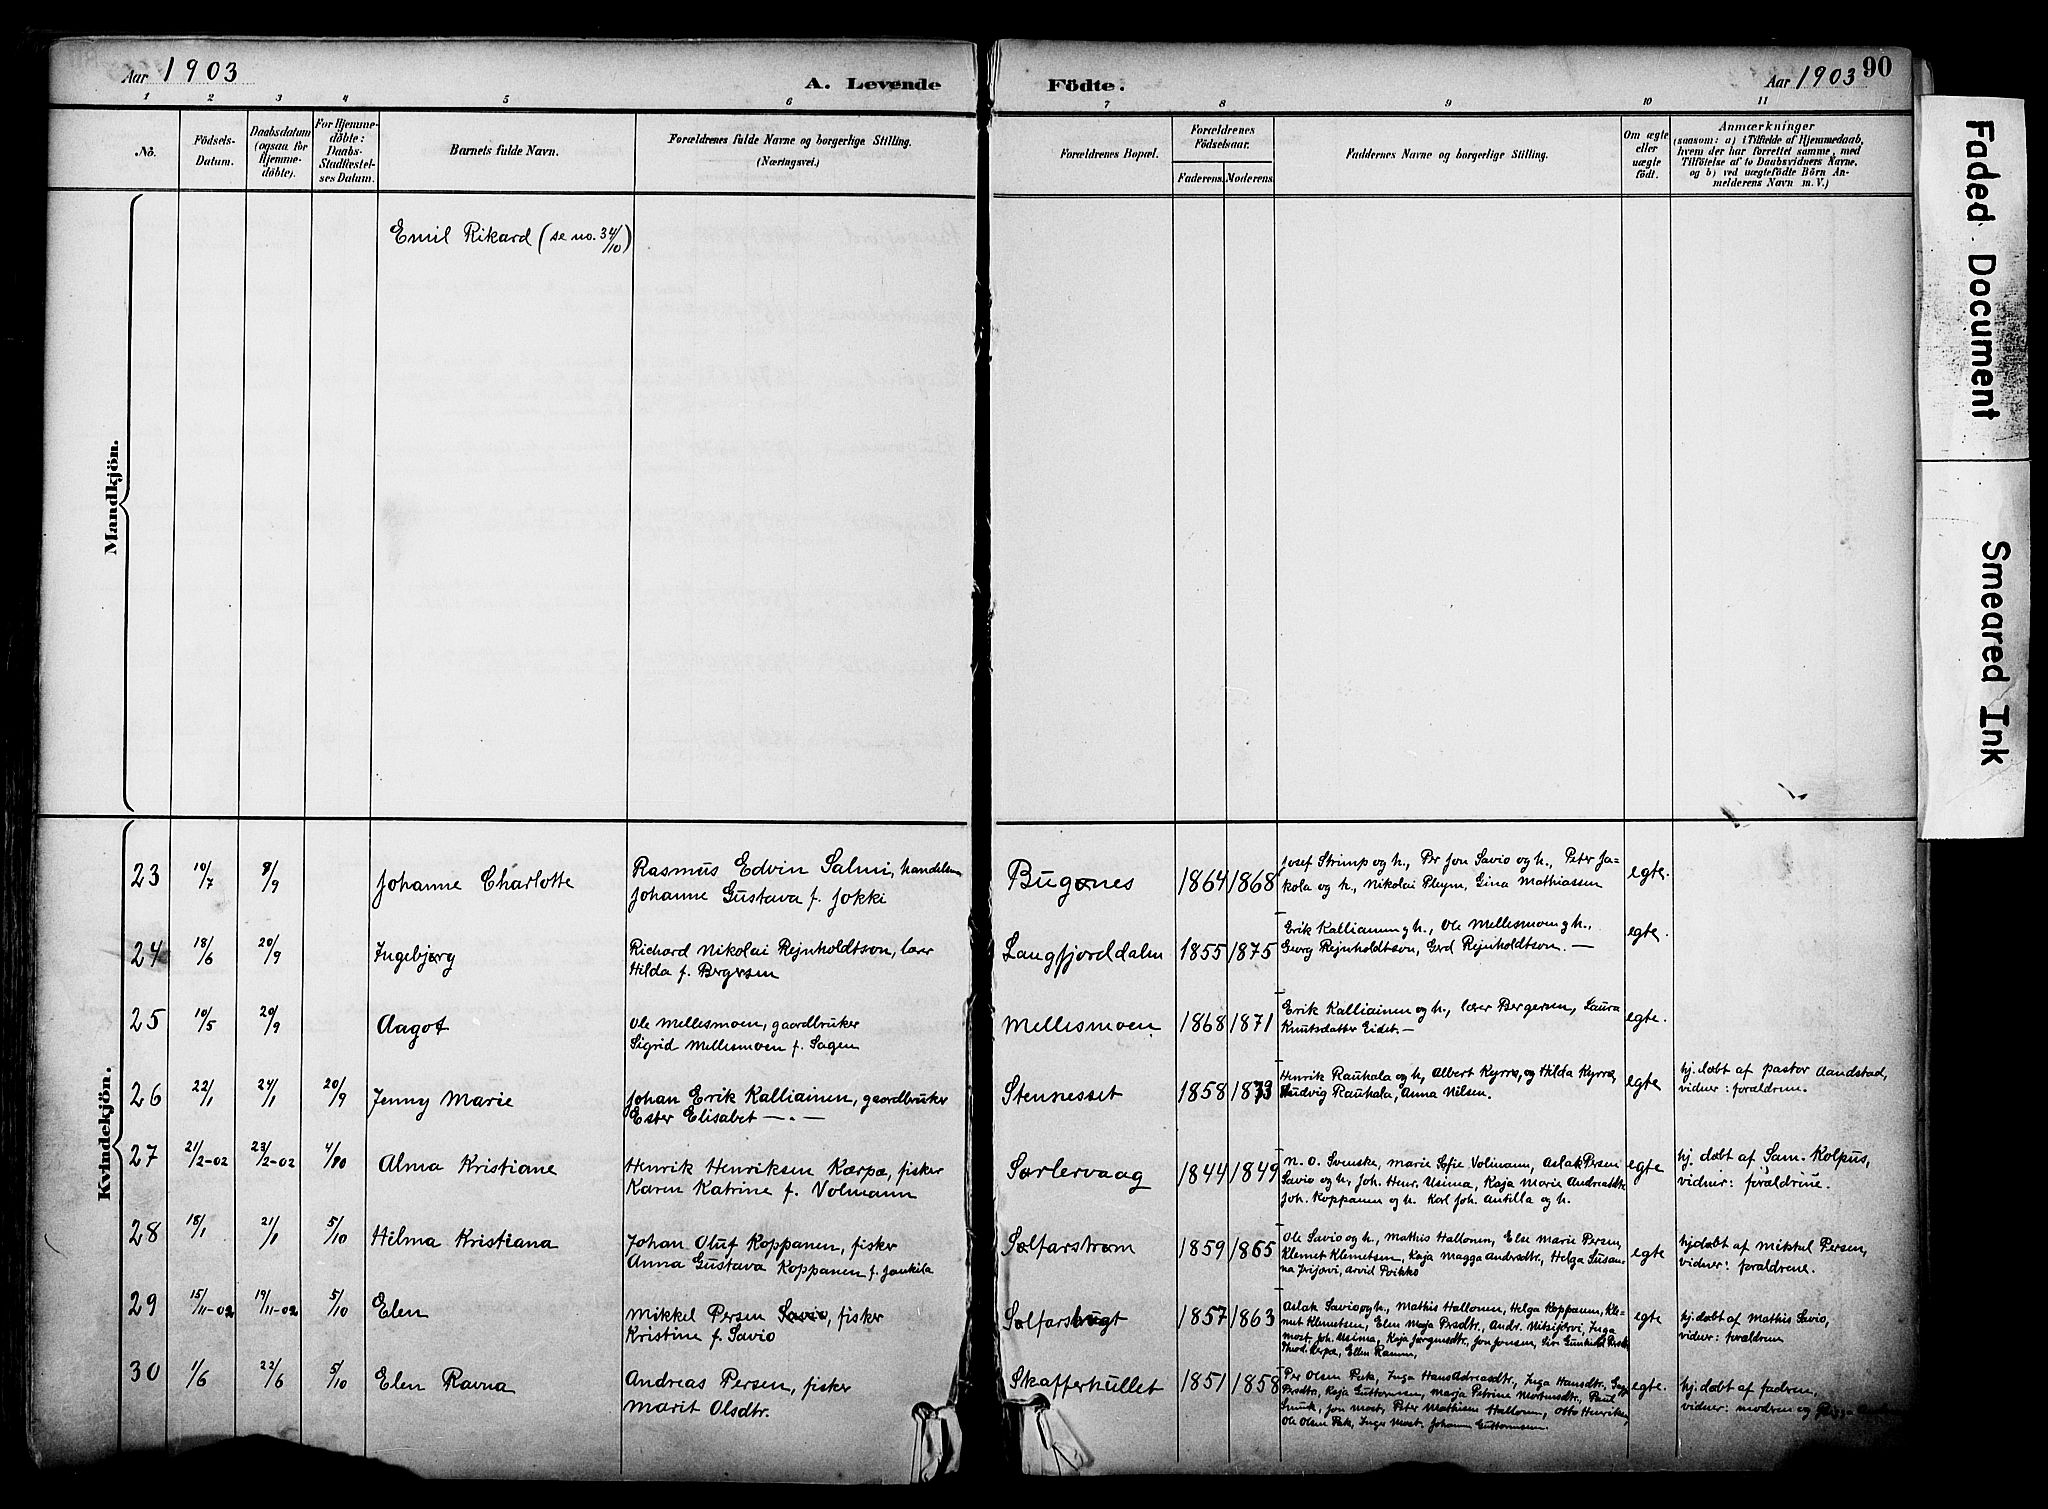 Aar 1903
A. Levende
Födte.
Aar 1903
90
1 2 3 4 5 6 7 8 9 10 11
No.
Födsels-
Datum.
Daabsdatum
(ogsaa for
Hjemme-
döbte).
For Hjemme-
döbte:
Daabs-
Stadfæstel-
ses Datum.
Barnets fulde Navn.
Forældrenes fulde Navne og borgerlige Stilling.
(Næringsvei.)
Forældrenes Bopæl.
Forældrenes
Födselsaar.
Faderens. Moderens.
Faddernes Navne og borgerlige Stilling.
Om ægte
eller
uægte
födt.
Anmærkninger
(saasom: a) i Tilfælde af Hjemmedaab,
hvem der har forrettet samme, med
Tilföielse af to Daabsvidners Navne,
og b) ved uægtefödte Börn An-
melderens Navn m. V.)
Mandkjön.
Emil Rikard (se no. 34/10)
Kvindekjön.
23 10/7 8/9 Johanne Charlotte
Rasmus Edvin Salmi, handelsm
Johanne Gustava f. Jokki
Bugønes 1864 1868
Josef Strimp og h., Per Jon Savio og h., Peter Ja-
kola og h., Nikolai Pleym, Gina Mathiassen
egte.
24 18/6 20/9 Ingebjørg
Richard Nikolai Rejnholdtson, lærer
Hilda f. Bergersen
Langfjorddalen 1855 1875
Erik Kalliainen og h., Ole Mellesmoen og h.,
Georg Rejnholdtson, Gerd Rejnholdtson. —
egte.
25 10/5 20/9 Aagot
Ole Mellesmoen, gaardbruker
Sigrid Mellesmoen f. Sagen
Mellesmoen 1868 1871
Erik Kalliainen og h., lærer Bergersen, Laura
Knutsdatter Eidet. —
egte.
26 22/1 24/1 20/9 Jenny Marie
Johan Erik Kalliainen, gaardbruker
Ester Elisabet — . —
Stennesset 1858 1873
Henrik Rauhala og h, Albert Kyrrø, og Hilda Kyrrø,
Ludvig Rauhala, Anna Nilsen.
egte
hj. døbt af pastor Aandstad,
vidner: forældrene.
27 21/2-02 23/2-02 4/10 Alma Kristiane
Henrik Henriksen Karpæ, fisker
Karen Katrine f. Volmann
Sørlervaag 1844 1849
N. O. Svenske, Marie Sofie Volmann, Aslak Persen
Savio og h, Joh. Henr. Usima, Kaja Marie Andreasdtr
Joh. Koppanen og h. Karl Joh. Antilla og h.
egte
hj. døbt af Sam. Kolpus,
vidner: forældrene.
28 18/1 21/1 5/10 Helma Kristiana
Johan Oluf Koppanen, fisker
Anna Gustava Koppanen f. Jankila
Sølfarstrøm 1859 1865
Ole Savio og h., Mathis Hallonen, Else Marie Persen,
Klemet Klemetsen, Kaja Magga Andrsdtr., Helga Susan-
na Irijovi, Arvid Poikko
egte
hj. døbt af Mikkel Persen,
vidner: forældrene.
29 15/11-02 19/11-02 5/10 Elen
Mikkel Persen Savio, fisker
Kristine f. Savio
Sølfarsbugt 1857 1863
Aslak Savio og h., Mathis Hallonen, Helga Koppanen, Kle-
met Klemetsen, Elen Maja Prsdtr., Andr. Nitsijervi, Inga
Most, Joh. Usima, Kaja Jørgensdtr, Jon Jonsen,
Thod. Kerpæ, Ellen Ramm,
egte
hj. døbt af Mathis Savio,
vidner: forældrene
30 1/6 22/6 5/10 Elen Ravna
Andreas Persen, fisker
Marit Olsdtr.
Skafferhullet 1851 1858
Per Olsen Pek, Inga Hans Adreasdtr., Inga Hansdtr,
Prsdtr, Kaja Guttormsen, Marja Petrine Mortensdtr., Paul
Smuk, Jon Most, Peter Mathisen Hallonen, Otto Henriksen,
Ole Olsen Pek, Inger Most. Johann Guttormsen.
egte.
hj. døbt af fadren,
vidner: modren og
Faded Document
Smeared Ink